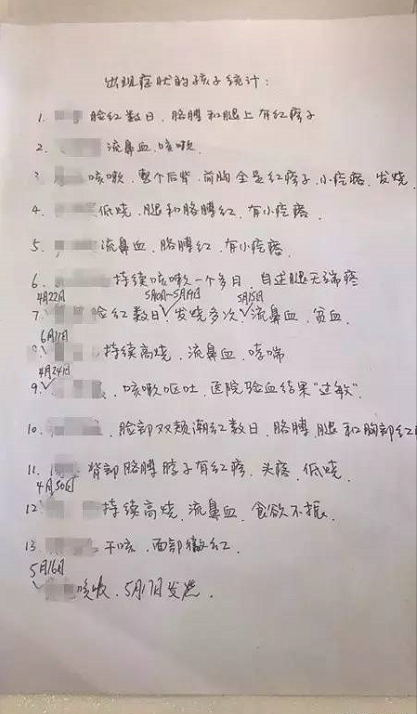 出现症状的孩子统计:
1. 脸红数日、胳膊和腿上有红疹子
2. 流鼻血、咳嗽.
3 咳嗽、整个后背、前胸全是红疹子、小疙瘩、发烧
4. 低烧、腿和胳膊红、有小疙瘩.
5. 流鼻血、胳膊红、有小疙瘩.
6. 持续咳嗽一个多月、自述腿无端疼
4月22日 5月15日
7. 脸红数日✓发烧多次✓流鼻血、贫血
6月11日
持续高烧、流鼻血、哮喘
4月24日
9.✓ 、咳嗽呕吐、医院验血结果"过敏".
10. 、脸部双颊潮红数日、胳膊、腿和胸部全红
11. 背部胳膊脖子有红疹、头疼、低烧.
4月30日
12 持续高烧、流鼻血、食欲不振.
13. 干咳、面部微红.
5月16日
咳嗽、5月17日发烧.